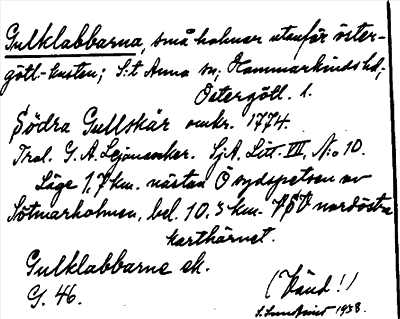 Gulklabbarna, små holmar utanför öster-
götl-kusten; S:t Anna sn, Hammarkinds hd,
Östergötl. l.
Södra Gullskär omkr. 1774.
Trol. G. A. Lejonancker. SjA, Litt. VII, N:o 10.
Läge 1,7 km. nästan O sydspetsen av
Sötmarholmen, bel. 10.5 km. VSV nordöstra
karthörnet.
Gulklabbarne ek.
G. 46.
(Vänd!)
1938.